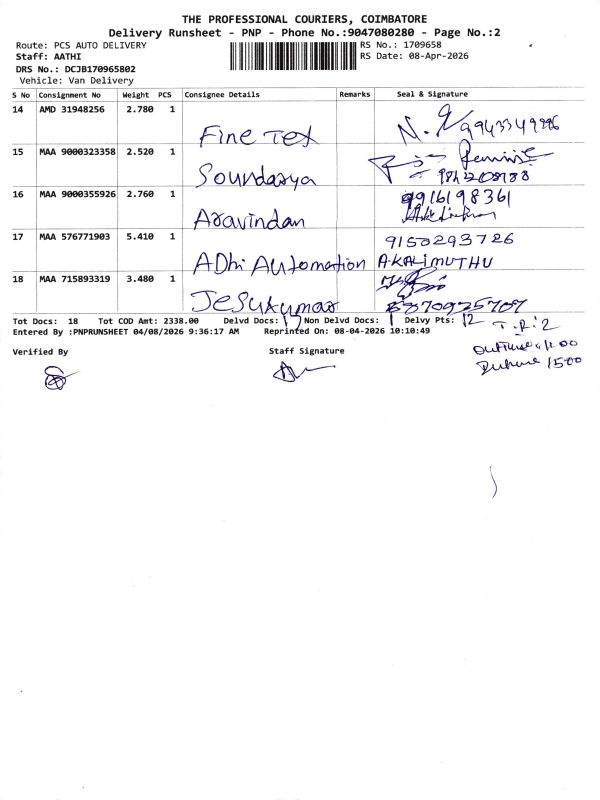 THE PROFESSIONAL COURIERS, COIMBATORE
Delivery Runsheet - PNP - Phone No.:9047080280 - Page No.:2
Route: PCS AUTO DELIVERY
RS No.: 1709658
Staff: AATHI
RS Date: 08-Apr-2026
DRS No.: DCJB170965802
Vehicle: Van Delivery
S No Consignment No Weight PCS Consignee Details Remarks Seal & Signature
14 AMD 31948256 2.780 1 Fine Tex
15 MAA 9000323358 2.520 1 Soundarya
16 MAA 9000355926 2.760 1 Aravindan 9916198361
17 MAA 576771903 5.410 1 ADhi Automation 9150293726
A.KALIMUTHU
18 MAA 715893319 3.480 1 Jesukumar
Tot Docs: 18 Tot COD Amt: 2338.00 Delvd Docs: 17 Non Delvd Docs: 1 Delvy Pts: 12
Entered By :PNPRUNSHEET 04/08/2026 9:36:17 AM Reprinted On: 08-04-2026 10:10:49
Verified By Staff Signature